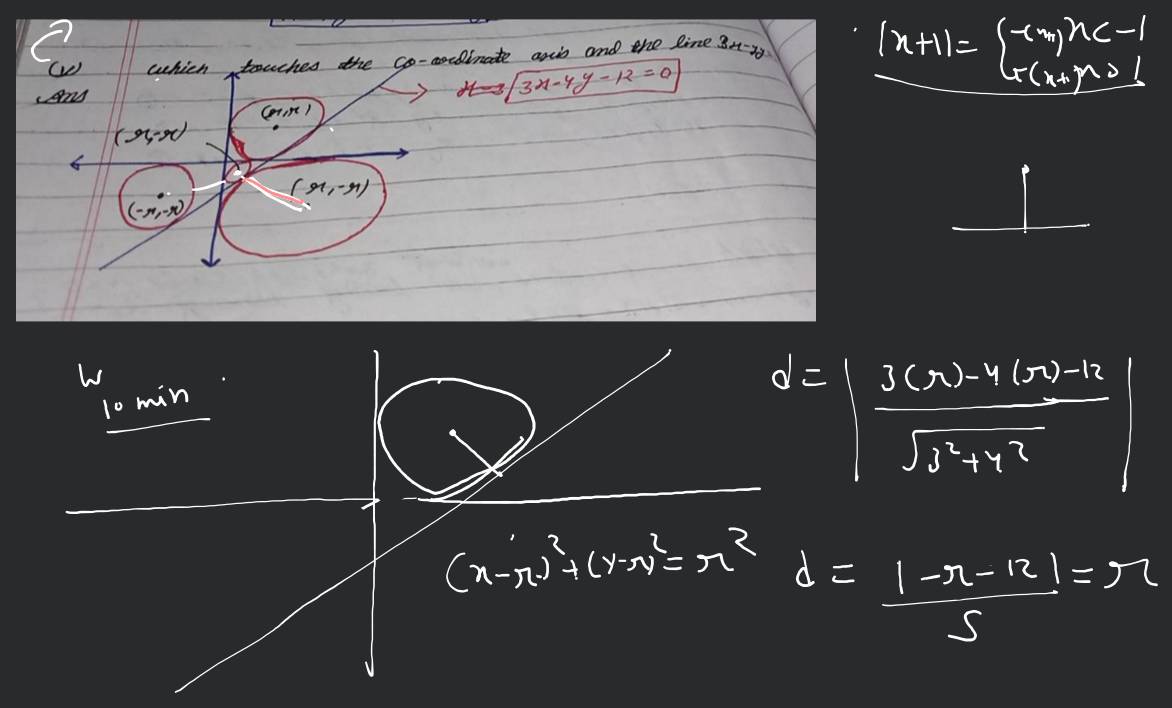 (v) which touches the co-ordinate axis and the line 3x-
Ans
3x-4y-12=0
(r,r)
(r,-r)
(r,-r)
(-r,-r)
|x+1|=
x<-1
W
10 min
d = | 3(r)-4(r)-12 |
√3²+4²
(x-r)²+(y-r)²=r²
d = |-r-12| = r
5